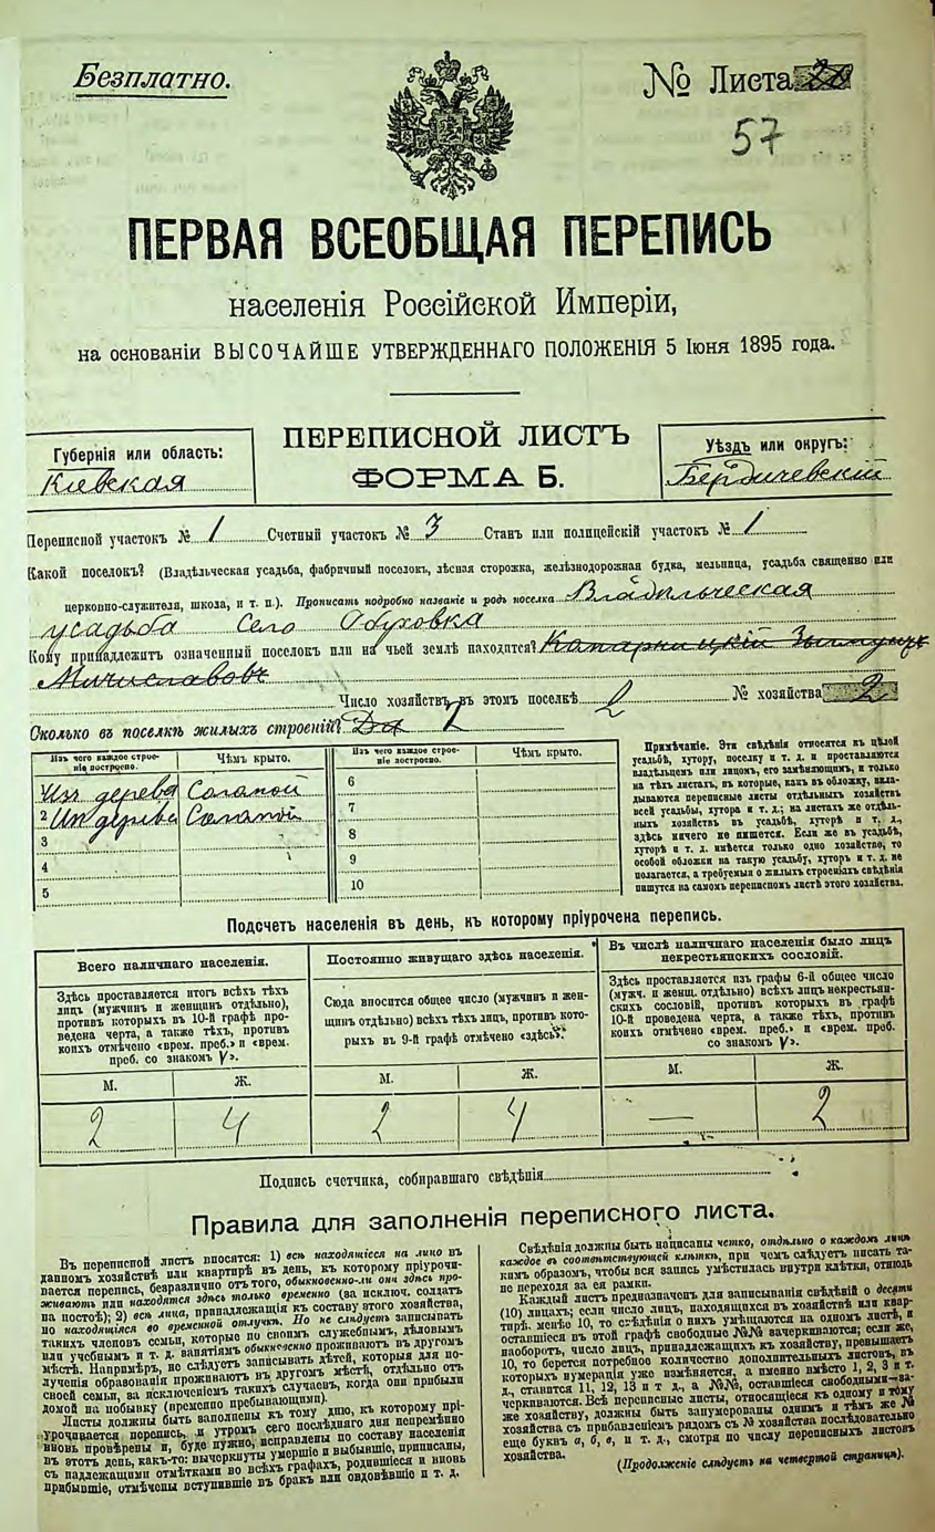 Безплатно.
№ Листа
57
ПЕРВАЯ ВСЕОБЩАЯ ПЕРЕПИСЬ
населенія Россійской Имперіи,
на основаніи ВЫСОЧАЙШЕ УТВЕРЖДЕННАГО ПОЛОЖЕНІЯ 5 Іюня 1895 года.
ПЕРЕПИСНОЙ ЛИСТЪ
ФОРМА Б.
Губернія или область:
Киевская
Уѣздъ или округъ:
Бердичевскій
Переписной участокъ № 1 Счетный участокъ № 3 Станъ или полицейскій участокъ № 1
Какой поселокъ? (Владѣльческая усадьба, фабричный поселокъ, лѣсная сторожка, желѣзнодорожная будка, мельница, усадьба священно или
церковно-служителя, школа, и т. п.). Прописать подробно названіе и родъ поселка Владѣльческая
усадьба село Обуховка
Кому принадлежитъ означенный поселокъ или на чьей землѣ находится?
Мичиславовъ
Число хозяйствъ въ этомъ поселкѣ 2 № хозяйства 2
Сколько въ поселкѣ жилыхъ строеній? Два 2
Изъ чего каждое строе-
ніе построено.
Чѣмъ крыто.
Изъ чего каждое строе-
ніе построено.
Чѣмъ крыто.
Изъ дерева Соломой
2 Изъ дерева Соломой
3
4
5
6
7
8
9
10
Примѣчаніе. Эти свѣдѣнія относятся къ цѣлой
усадьбѣ, хутору, поселку и т. д. и проставляются
владѣльцемъ или лицомъ, его замѣняющимъ, и только
на тѣхъ листахъ, въ которые, какъ въ обложку, вкла-
дываются переписные листы отдѣльныхъ хозяйствъ
всей усадьбы, хутора и т. д.; на листахъ же отдѣль-
ныхъ хозяйствъ въ усадьбѣ, хуторѣ и т. д.,
здѣсь ничего не пишется. Если же въ усадьбѣ,
хуторѣ и т. д. имѣется только одно хозяйство, то
особой обложки на такую усадьбу, хуторъ и т. д. не
полагается, а требуемыя о жилыхъ строеніяхъ свѣдѣнія
пишутся на самомъ переписномъ листѣ этого хозяйства.
Подсчетъ населенія въ день, къ которому пріурочена перепись.
Всего наличнаго населенія.
Здѣсь проставляется итогъ всѣхъ тѣхъ
лицъ (мужчинъ и женщинъ отдѣльно),
противъ которыхъ въ 10-й графѣ про-
ведена черта, а также тѣхъ, противъ
коихъ отмѣчено «врем. преб.» и «врем.
преб. со знакомъ V».
М. Ж.
2 4
Постоянно живущаго здѣсь населенія.
Сюда вносится общее число (мужчинъ и жен-
щинъ отдѣльно) всѣхъ тѣхъ лицъ, противъ кото-
рыхъ въ 9-й графѣ отмѣчено «здѣсь».
М. Ж.
2 4
Въ числѣ наличнаго населенія было лицъ
некрестьянскихъ сословій.
Здѣсь проставляется изъ графы 6-й общее число
(мужч. и женщ. отдѣльно) всѣхъ лицъ некрестьян-
скихъ сословій, противъ которыхъ въ графѣ
10-й проведена черта, а также тѣхъ, противъ
коихъ отмѣчено «врем. преб.» и «врем. преб.
со знакомъ V».
М. Ж.
— 2
Подпись счетчика, собиравшаго свѣдѣнія
Правила для заполненія переписного листа.
Въ переписной листъ вносятся: 1) всѣ находящіеся на лицо въ
данномъ хозяйствѣ или квартирѣ въ день, къ которому пріурочи-
вается перепись, безразлично отъ того, обыкновенно-ли они здѣсь про-
живаютъ или находятся здѣсь только временно (за исключ. солдатъ
на постоѣ); 2) всѣ лица, принадлежащія къ составу этого хозяйства,
но находящіяся во временной отлучкѣ. Но не слѣдуетъ записывать
такихъ членовъ семьи, которые по своимъ служебнымъ, дѣловымъ
или учебнымъ и т. д. занятіямъ обыкновенно проживаютъ въ другомъ
мѣстѣ. Напримѣръ, не слѣдуетъ записывать дѣтей, которыя для по-
лученія образованія проживаютъ въ другомъ мѣстѣ, отдѣльно отъ
своей семьи, за исключеніемъ такихъ случаевъ, когда они прибыли
домой на побывку (временно пребывающими).
Листы должны быть заполнены къ тому дню, къ которому прі-
урочивается перепись, и утромъ сего послѣдняго дня непремѣнно
вновь провѣрены и, буде нужно, исправлены по составу населенія
въ этотъ день, какъ-то: вычеркнуты умершіе и выбывшіе, приписаны,
съ надлежащими отмѣтками во всѣхъ графахъ, родившіеся и вновь
прибывшіе, отмѣчены вступившіе въ бракъ или овдовѣвшіе и т. д.
Свѣдѣнія должны быть написаны четко, отдѣльно о каждомъ лицѣ
каждое въ соотвѣтствующей клѣткѣ, при чемъ слѣдуетъ писать та-
кимъ образомъ, чтобы вся запись умѣстилась внутри клѣтки, отнюдь
не переходя за ея рамки.
Каждый листъ предназначенъ для записыванія свѣдѣній о десяти
(10) лицахъ; если число лицъ, находящихся въ хозяйствѣ или квар-
тирѣ, менѣе 10, то свѣдѣнія о нихъ умѣщаются на одномъ листѣ, а
оставшіеся въ этой графѣ свободные №№ зачеркиваются; если же,
наоборотъ, число лицъ, принадлежащихъ къ хозяйству, превышаетъ
10, то берется потребное количество дополнительныхъ листовъ, въ
которыхъ нумерація уже измѣняется, а именно вмѣсто 1, 2, 3 и т.
д., ставится 11, 12, 13 и т. д., а №№, оставшіеся свободными—за-
черкиваются. Всѣ переписные листы, относящіеся къ одному и тому
же хозяйству, должны быть занумерованы однимъ и тѣмъ же №
хозяйства съ прибавленіемъ рядомъ съ № хозяйства послѣдовательно
еще буквъ а, б, в, и т. д., смотря по числу переписныхъ листовъ
хозяйства.
(Продолженіе слѣдуетъ на четвертой страницѣ).